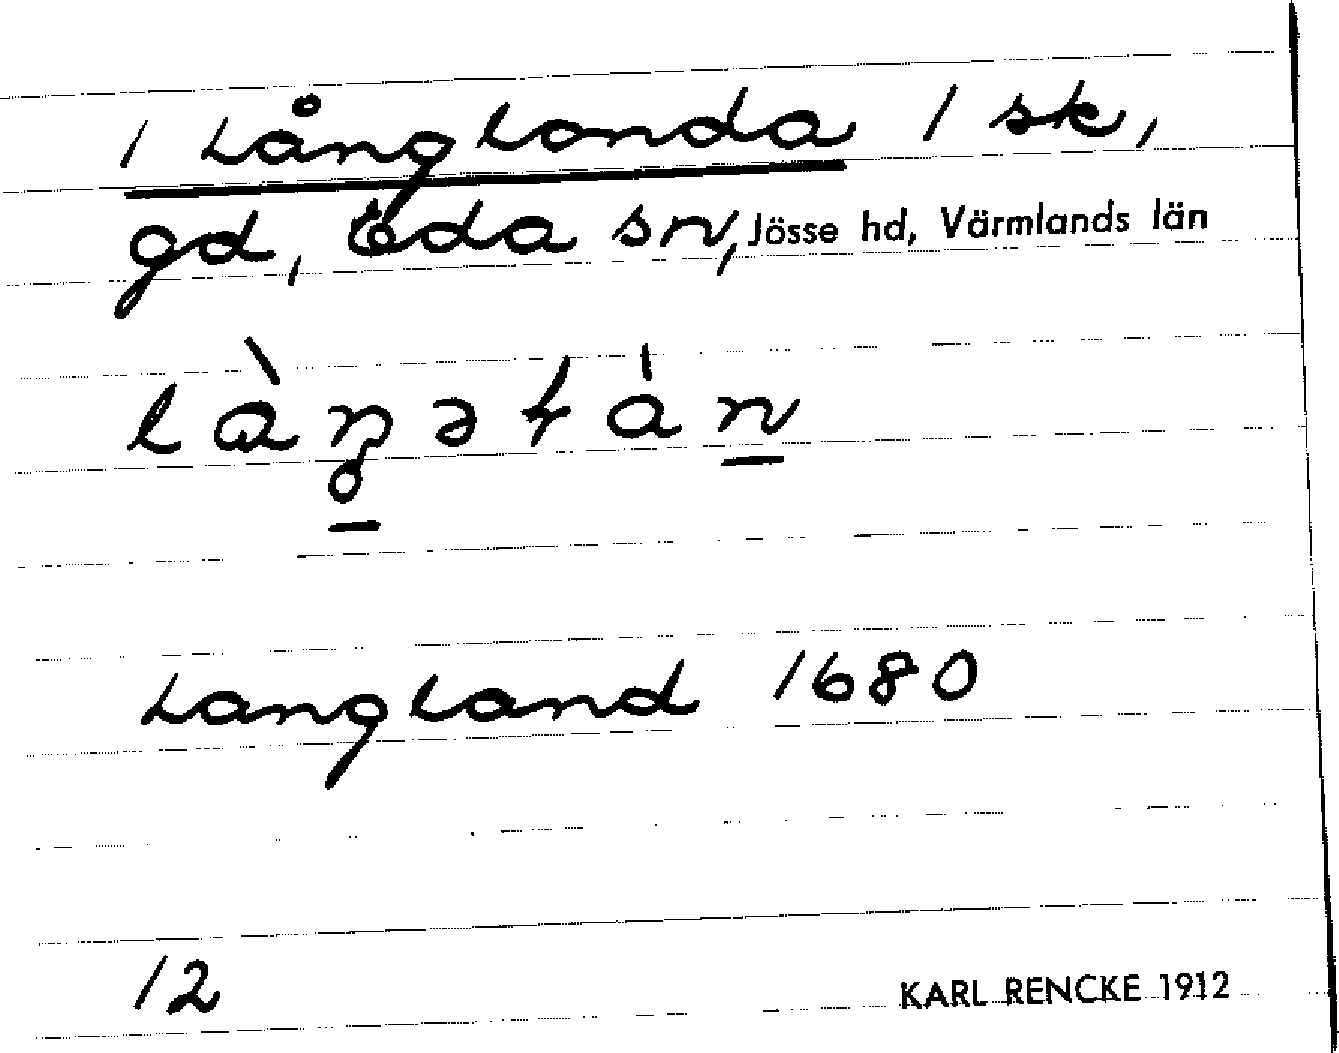 / Långlanda / sk,
gd, Eda sn, Jösse hd, Värmlands län
Langland 1680
12
KARL RENCKE 1912